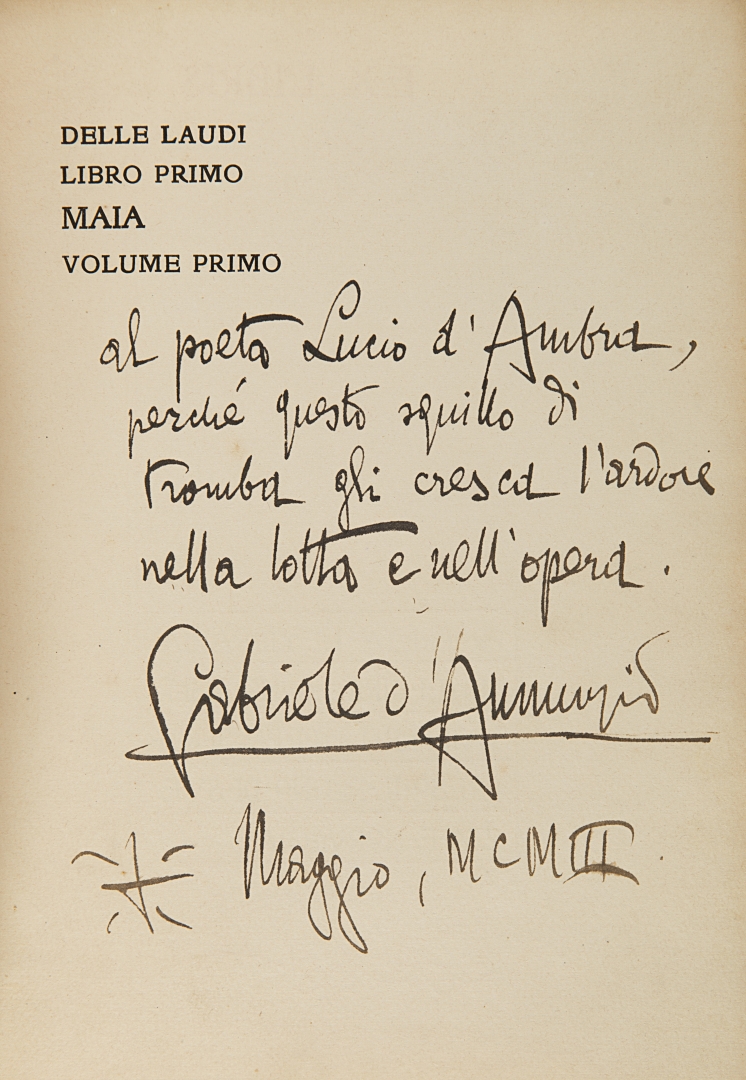 DELLE LAUDI
LIBRO PRIMO
MAIA
VOLUME PRIMO
al poeta Lucio d'Ambra,
perché questo squillo di
tromba gli cresca l'ardore
nella lotta e nell'opera.
Gabriele d'Annunzio
Maggio, MCMIII.